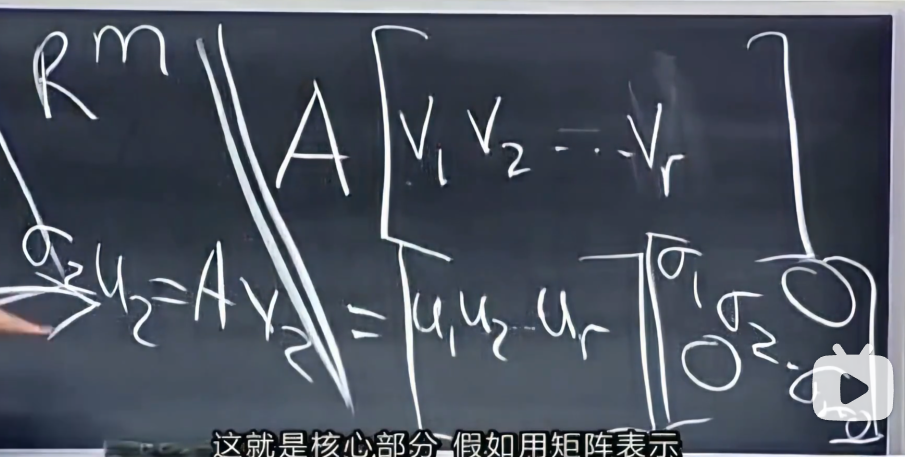 R^m
A [v_1 v_2 --- v_r ]
σ_2 u_2 = A v_2
= [u_1 u_2 -- u_r ] [σ_1 σ_2 0 0
这就是核心部分 假如用矩阵表示